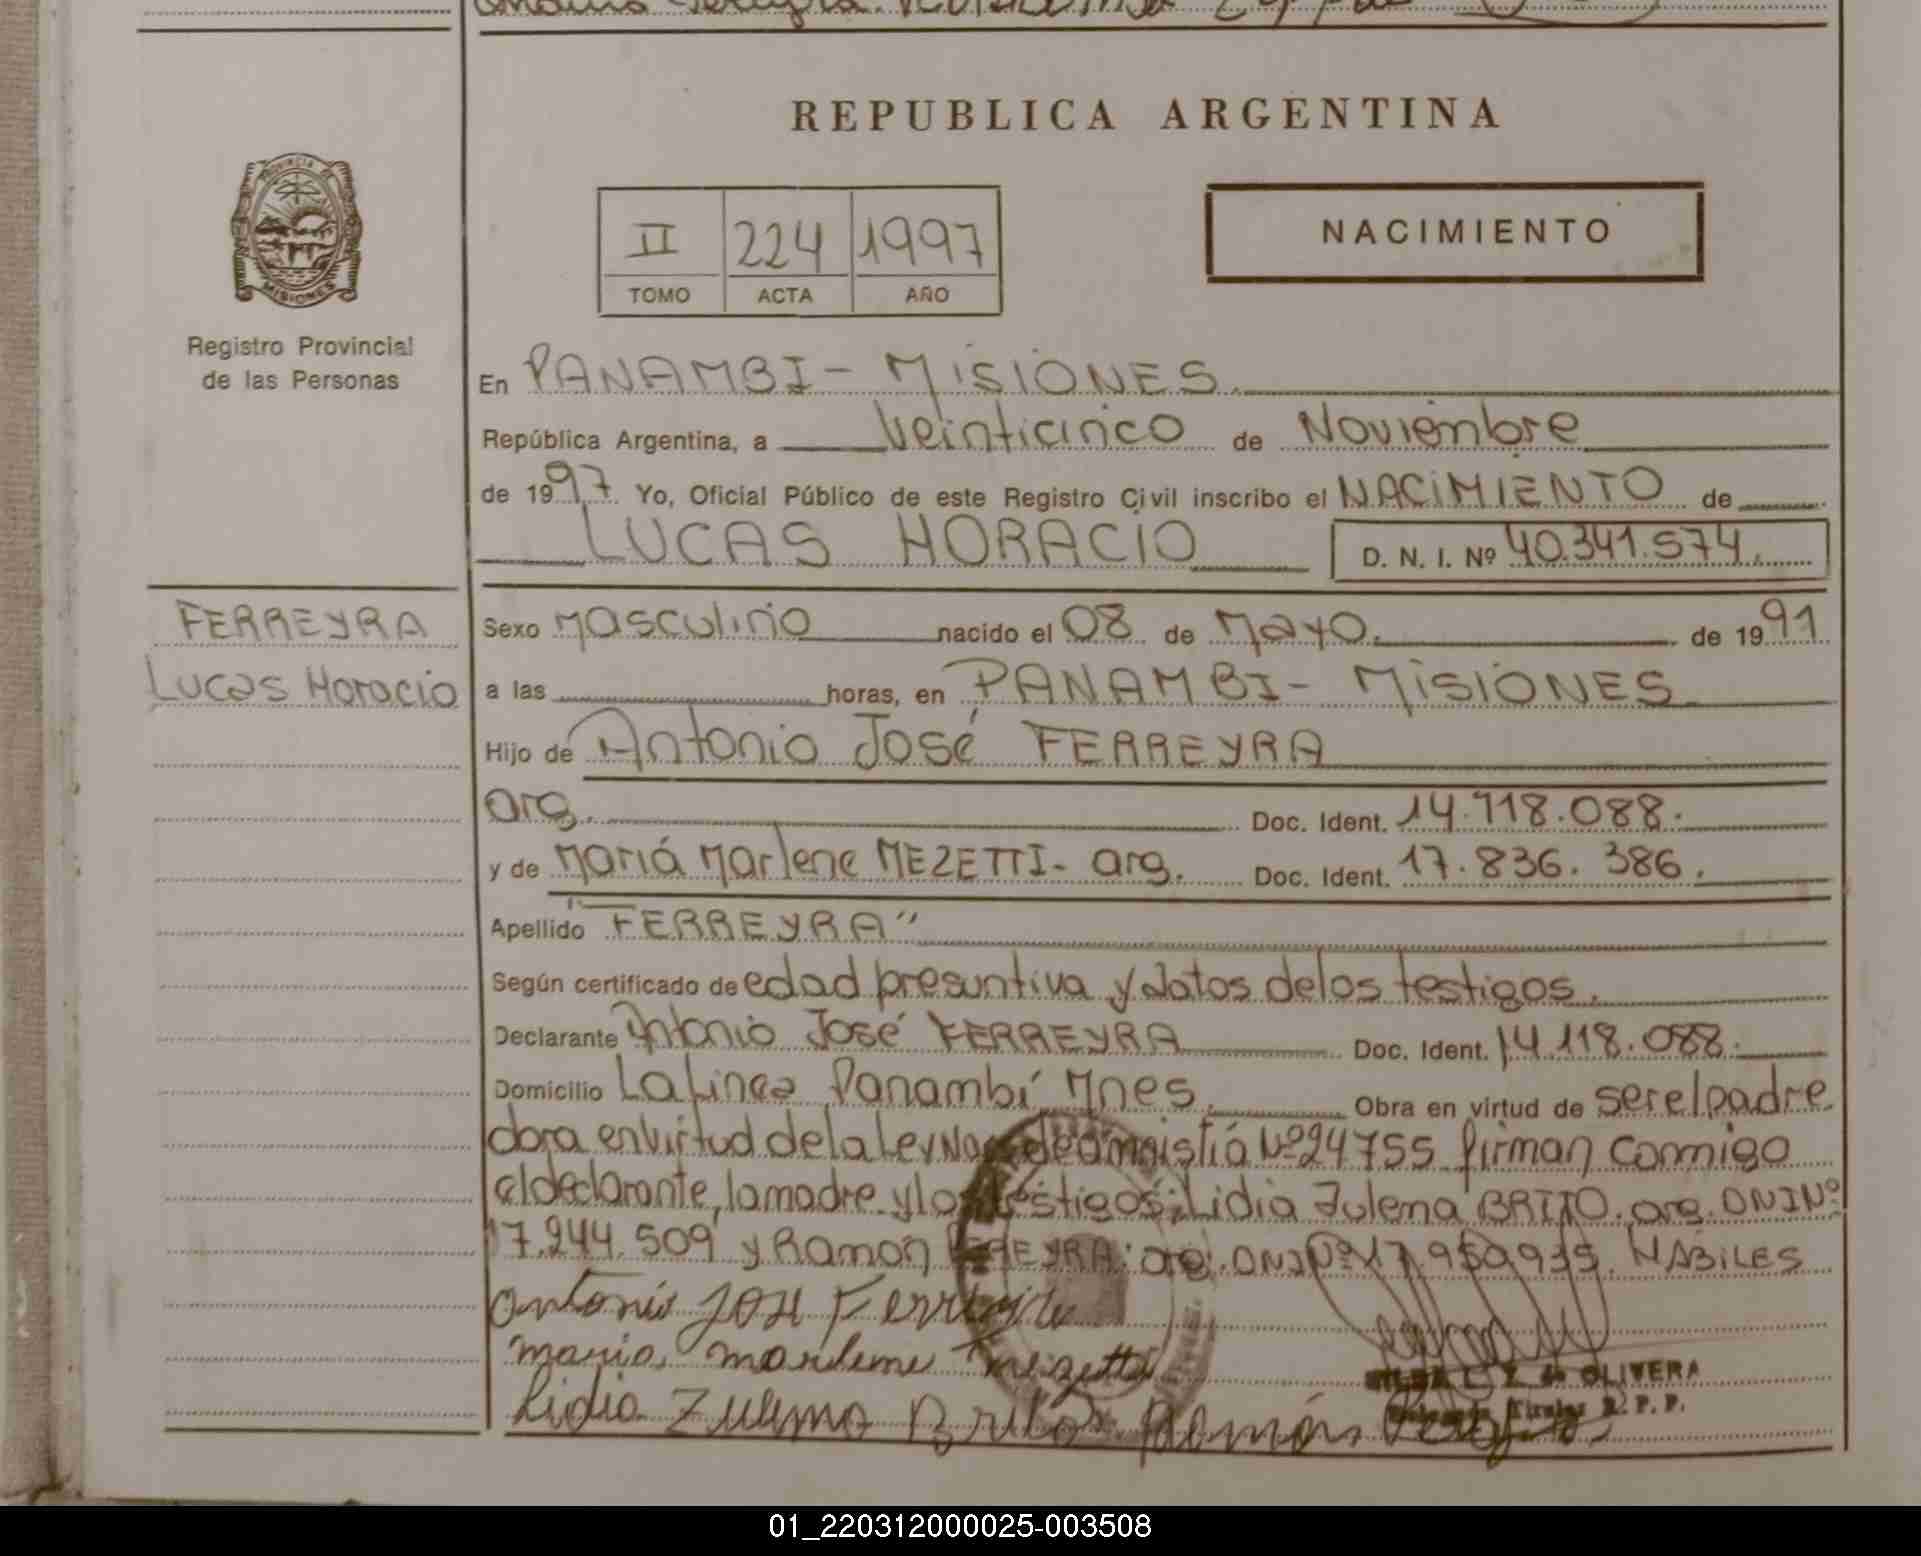 REPUBLICA ARGENTINA
PROVINCIA DE
MISIONES
Registro Provincial
de las Personas
II 224 1997
TOMO ACTA AÑO
NACIMIENTO
En PANAMBI - MISIONES.
República Argentina, a veinticinco de Noviembre
de 1997. Yo, Oficial Público de este Registro Civil inscribo el NACIMIENTO de
LUCAS HORACIO D. N. I. Nº 40.341.574.
FERREYRA
Lucas Horacio
Sexo Masculino nacido el 08 de Mayo. de 1991
a las horas, en PANAMBI - MISIONES
Hijo de Antonio José FERREYRA
arg. Doc. Ident. 14.118.088.
y de Mariá Marlene MEZETTI - arg. Doc. Ident. 17.836.386.
Apellido "FERREYRA"
Según certificado de edad presuntiva y datos de los testigos.
Declarante Antonio José FERREYRA Doc. Ident. 14.118.088.
Domicilio La Linea Panambí Mnes. Obra en virtud de ser el padre
obra en virtud de la Ley de amnistiá Nº 24755 firman conmigo
el declarante, la madre y los testigos: Lidia Zulema BRITO. arg. DNI Nº
17.244.509 y Ramón arg. DNI Nº HABILES
Antonio José Ferreira
maria marlene mezetti
Lidia Zulema Brito Ramón
de OLIVERA
Titular R. P. P.
01_220312000025-003508